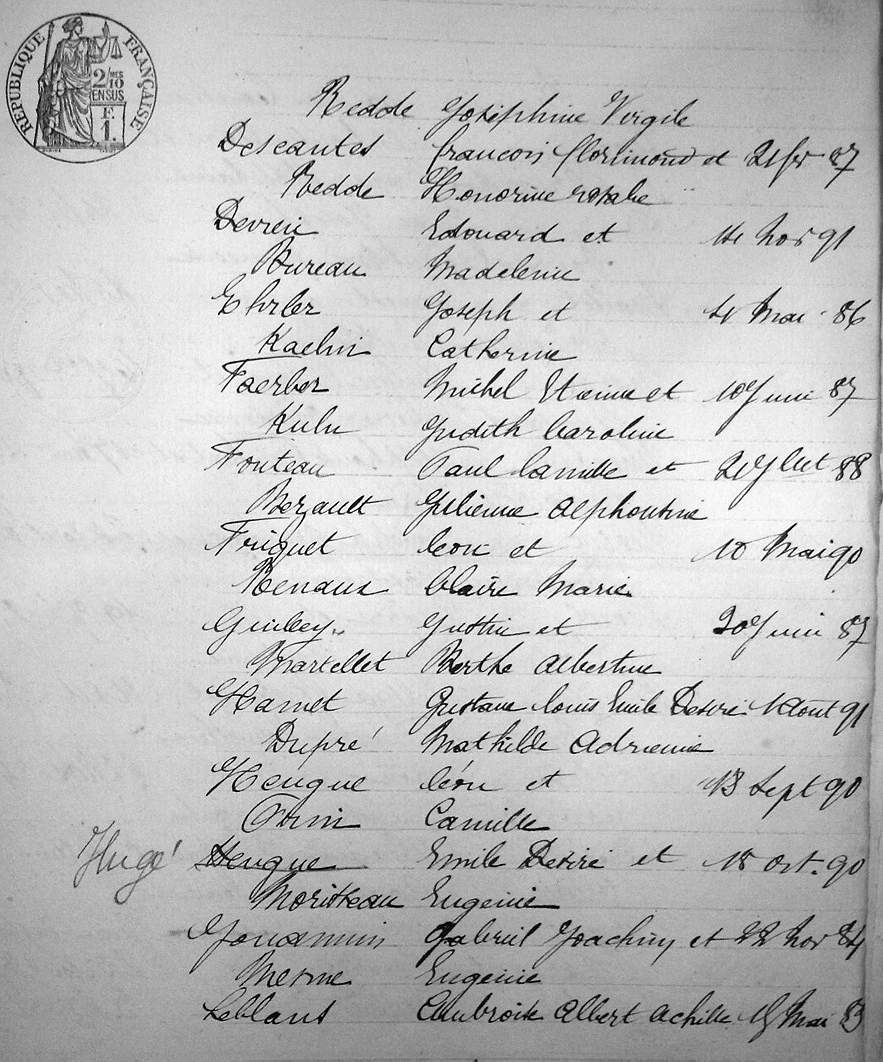 RÉPUBLIQUE FRANÇAISE
2/10
EN SUS
F.
1.
Redde Joséphine Virgile
Descantes francois florimond et 21 fer 87
Redde Honorine rosalie
Devreu Edouard et 14 Nov 91
Bureau Madeleine
Ehrler Joseph et 21 Mai 86
Kaelin Catherine
Faerber Michel Etienne et 10 Juin 87
Kuhn Judith Caroline
Fouteau Paul Camille et 21 Jllet 88
Bezault Julienne Alphontine
Friquet leon et 10 Mai 90
Renaux Claire Marie
Guibey Justin et 20 Juin 87
Martellet Berthe albertine
Hamet Gustave louis Emile Desiré 1 Aout 91
Dupré Mathilde Adrienne
Heugue léon et 13 Sept 90
Camille
Hugé Heugue Emile Desiré et 18 Oct. 90
Moriteau Eugenie
Jouannin Gabriel Joachim et 22 Nov 84
Mesme Eugenie
Leblans Ambroise Albert Achille 15 Mai 83